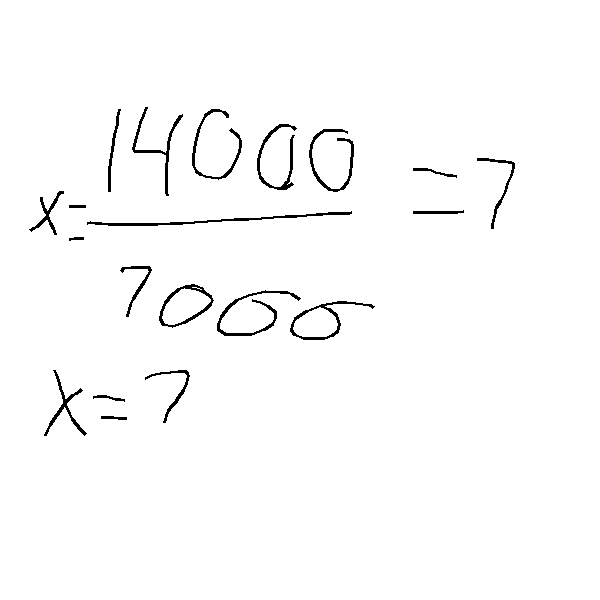 x = 14000/7000 = 7
x = 7